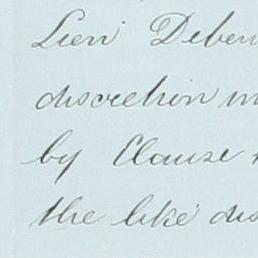 Lien Deben
discretion m
by Clause
the like dis